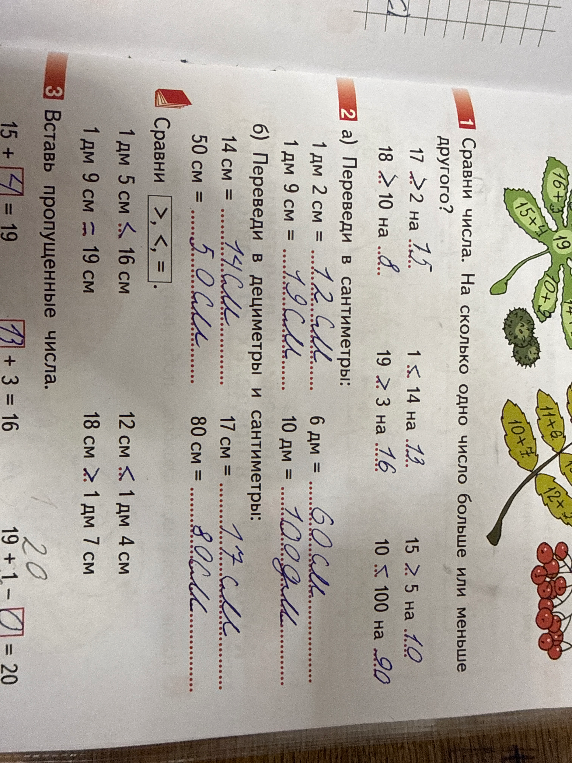 16+3
15+4
19
0+
11+6
10+7
12+
1 Сравни числа. На сколько одно число больше или меньше
другого?
17 > 2 на 15 1 < 14 на 13 15 > 5 на 10
18 > 10 на 8 19 > 3 на 16 10 < 100 на 90
2 а) Переведи в сантиметры:
1 дм 2 см = 12 см 6 дм = 60 см
1 дм 9 см = 19 см 10 дм = 100 дм
б) Переведи в дециметры и сантиметры:
14 см = 14 см 17 см = 17 см
50 см = 50 см 80 см = 80 см
Сравни >, <, = .
1 дм 5 см < 16 см 12 см < 1 дм 4 см
1 дм 9 см = 19 см 18 см > 1 дм 7 см
3 Вставь пропущенные числа.
20
15 + 4 = 19 13 + 3 = 16 19 + 1 - 0 = 20